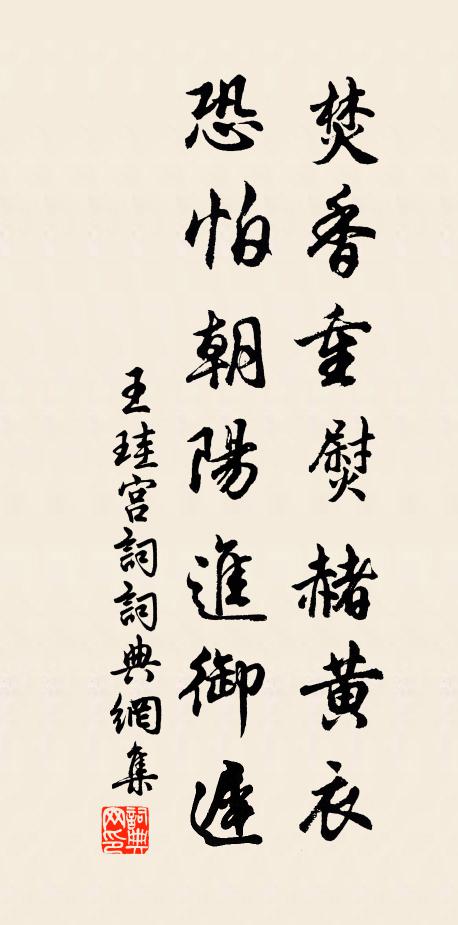 焚香重熨赭黃衣
恐怕朝陽進御遲
王珪宮詞詞典網集
詞典网印